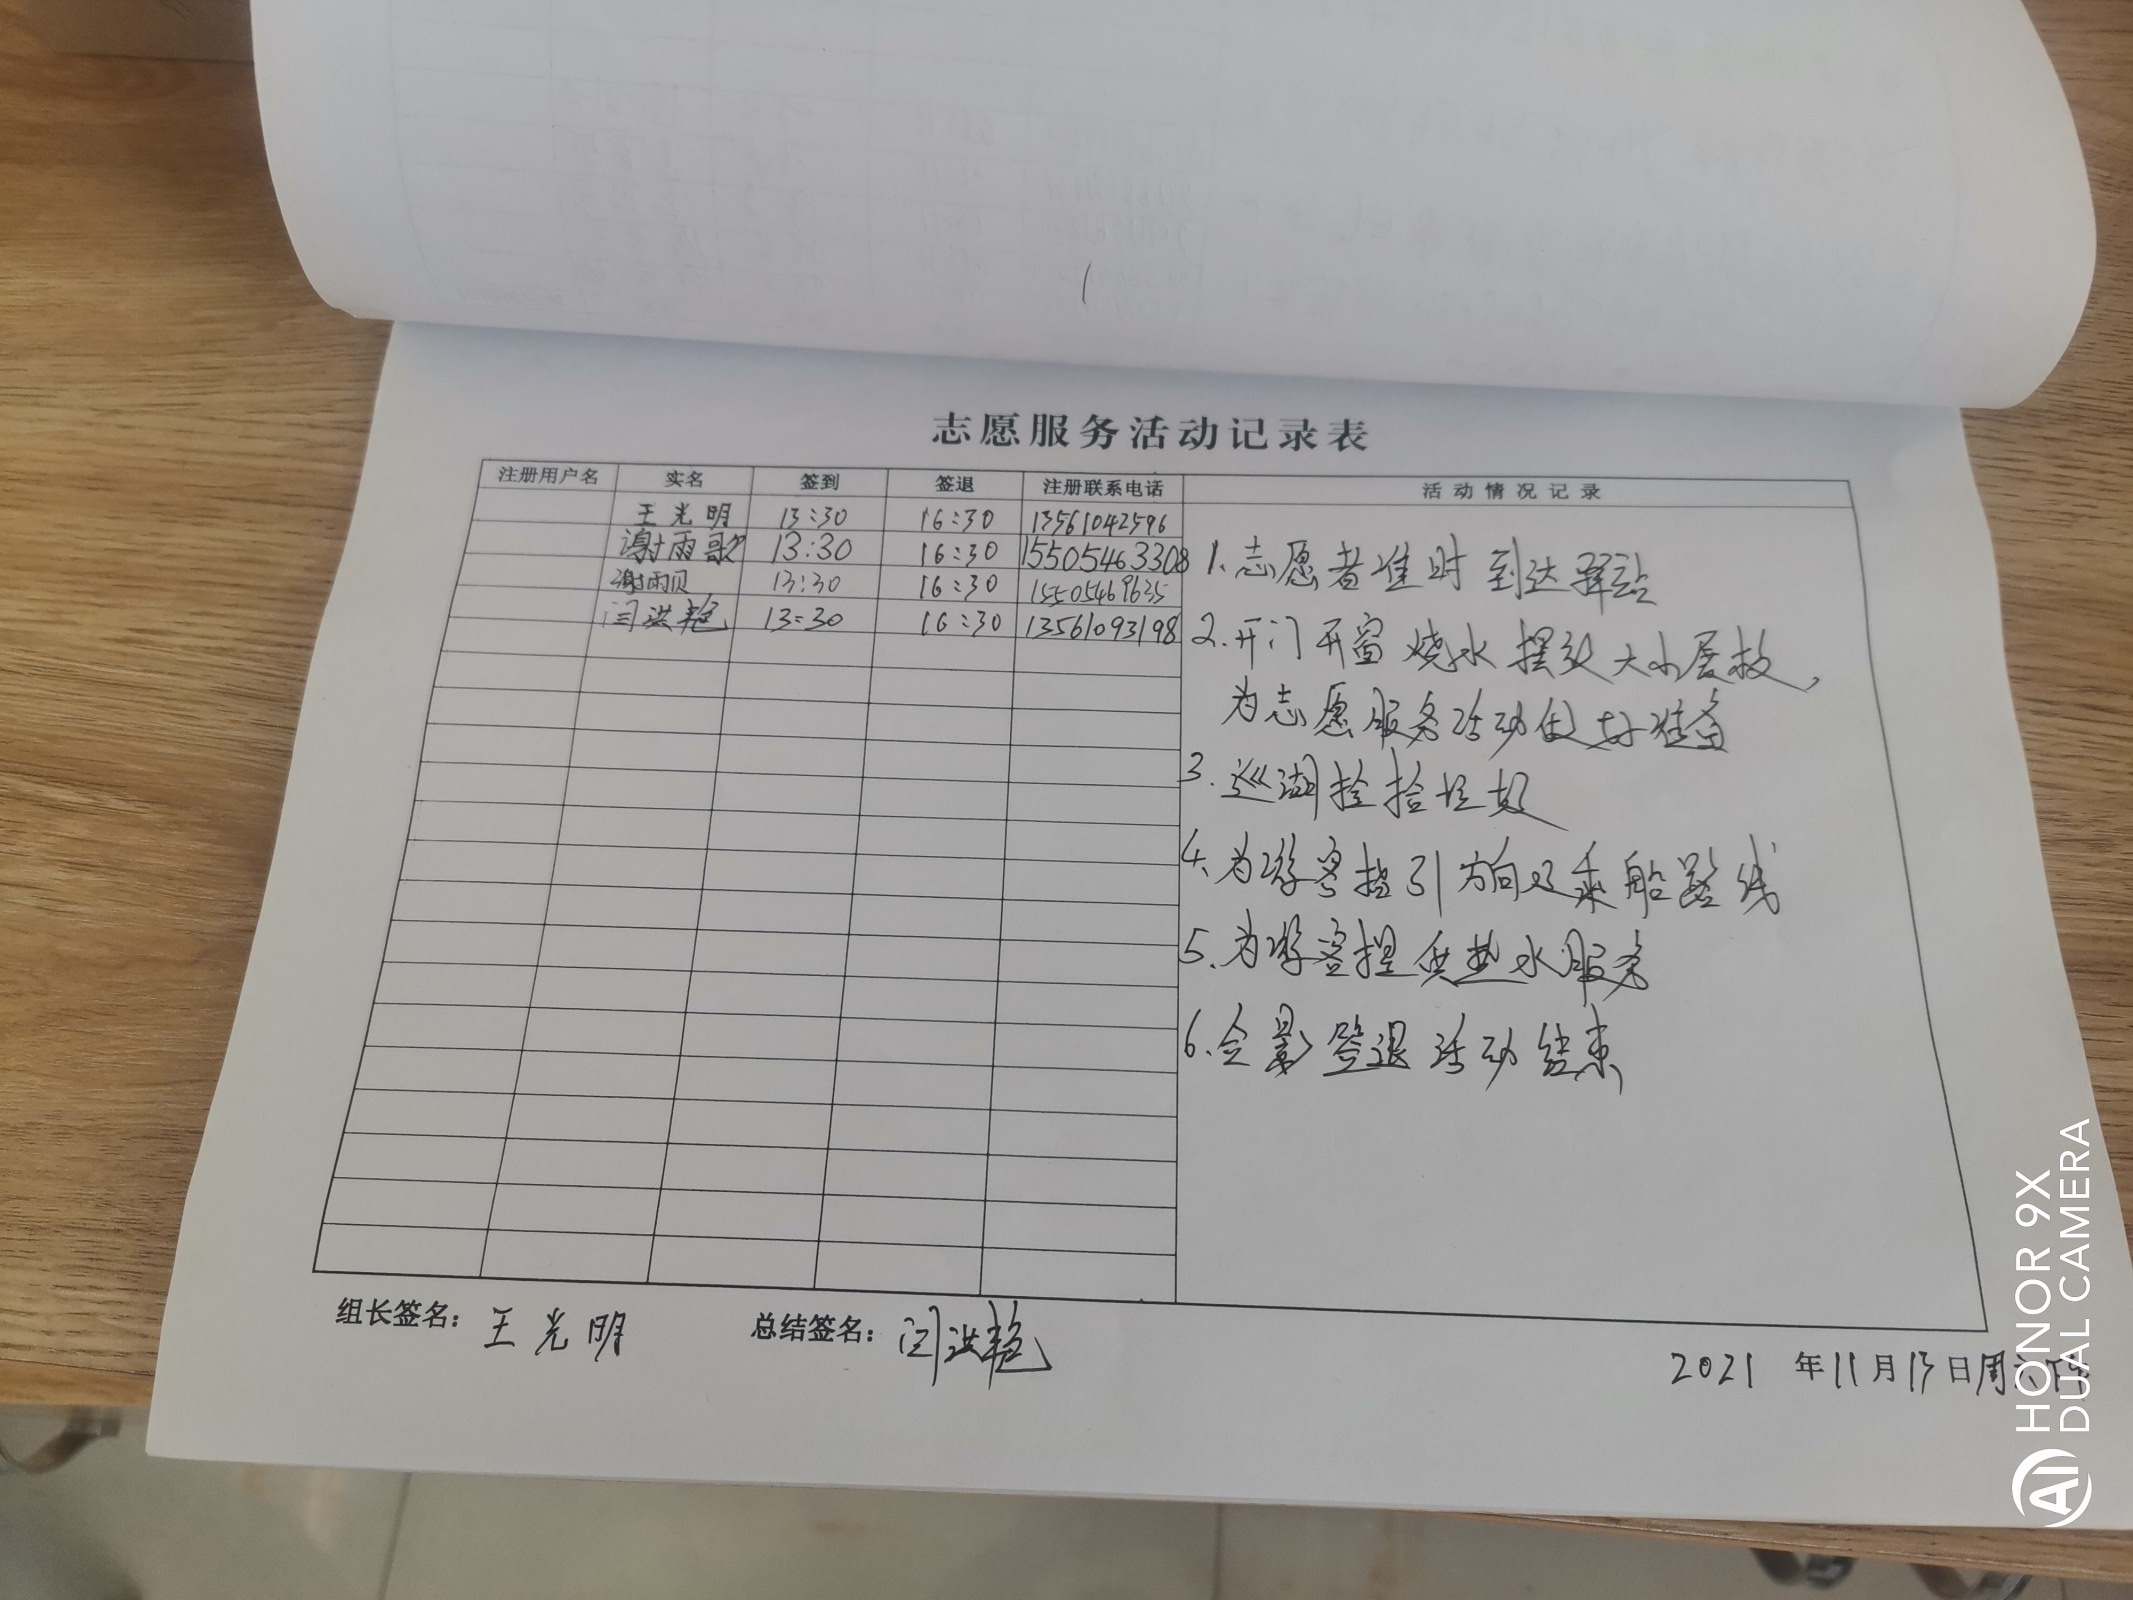 志愿服务活动记录表
注册用户名 实名 签到 签退 注册联系电话 活动情况记录
王光明 13:30 16:30 13561042596
谢雨歌 13:30 16:30 15505463308
谢雨贝 13:30 16:30 15505469635
闫洪艳 13:30 16:30 13561093198
1.志愿者准时到达驿站
2.开门开窗烧水摆放大小展板,
为志愿服务活动做好准备
3.巡湖捡拾垃圾
4.为游客指引方向及乘船路线
5.为游客提供热水服务
6.合影签退活动结束
组长签名:王光明 总结签名:闫洪艳
2021 年11月13日周六
HONOR 9X
AI DUAL CAMERA